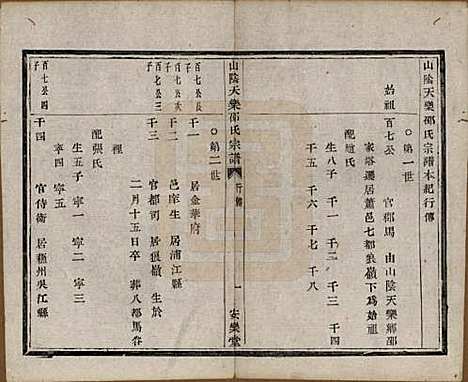 山陰天樂邵氏宗譜本紀行傳
○第一世
始祖百七公 官都馬 由山陰天樂鄉邵
家塔遷居蕭邑七都狼嶺下爲始祖
配應氏
生八子 千一 千二 千三 千四
千五 千六 千七 千八
山陰天樂邵氏宗譜 行傳 一 安樂堂
○第二世
百七公長子
千一 居金華府
百七公次子
千二 邑庠生 居浦江縣
百七公三子
千三 官都司 居狼嶺 生於
二月十五日卒 葬八都馬谷
裡
配張氏
生五子 寧一 寧二 寧三
寧四 寧五
百七公四子
千四 官侍衛 居蘇州吳江縣